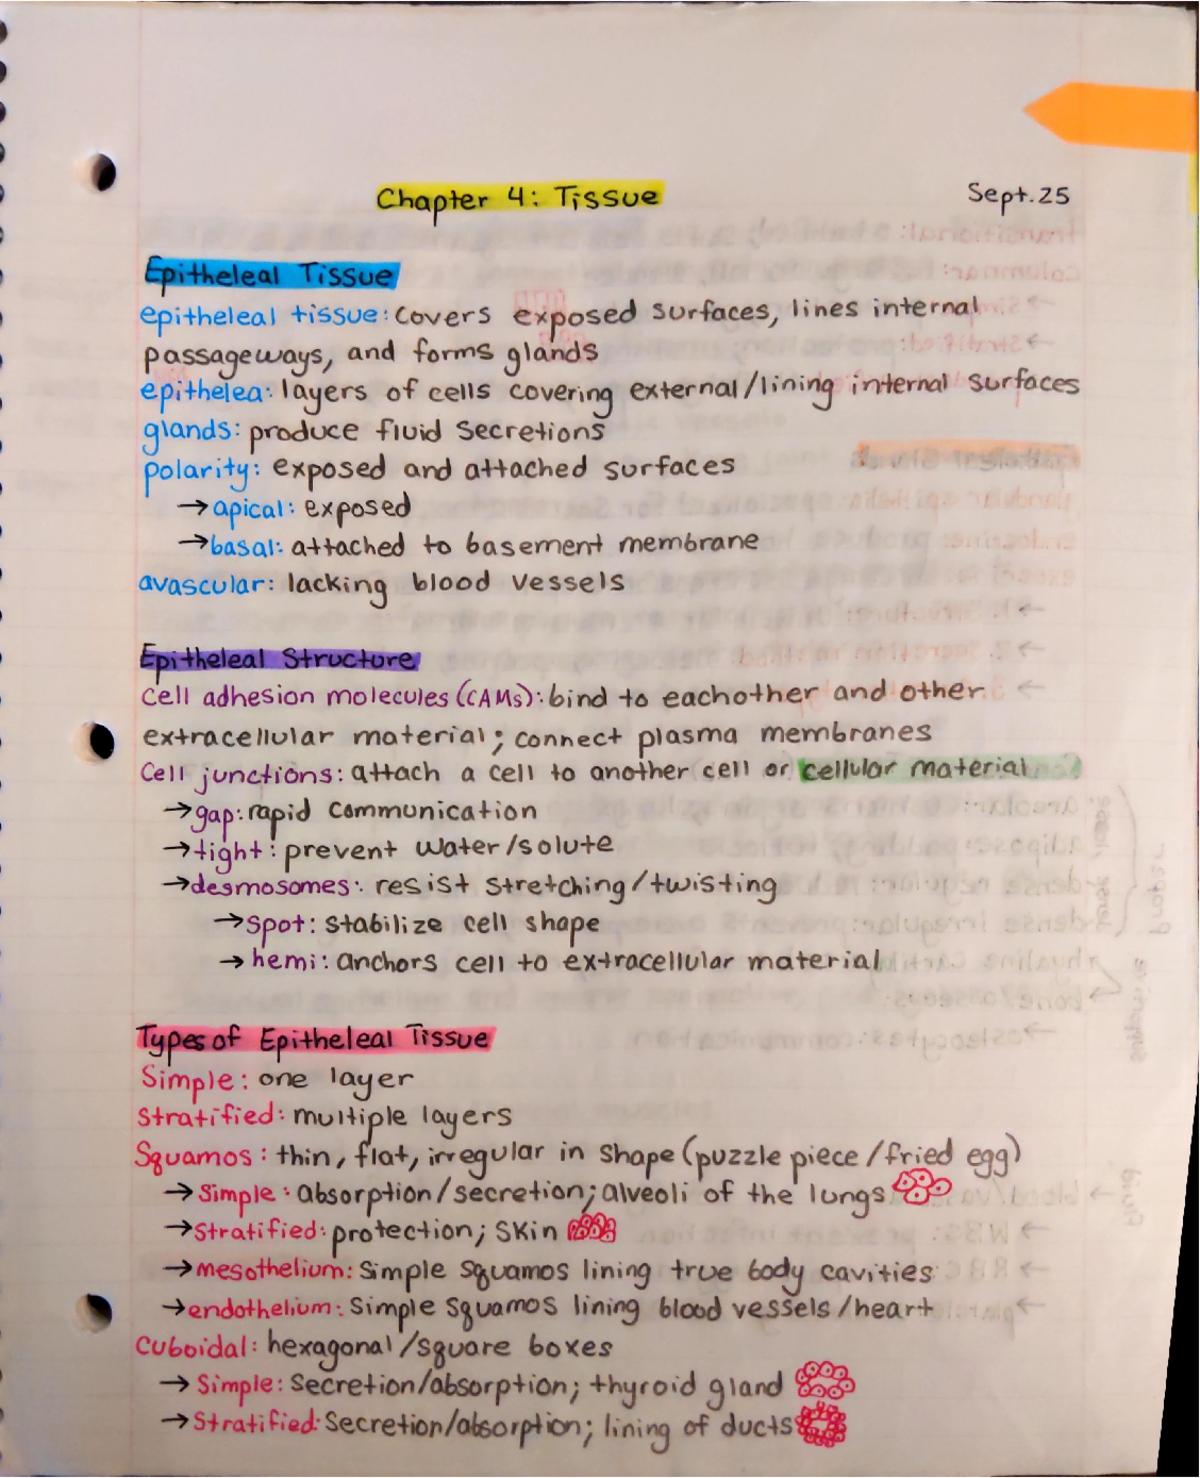 Chapter 4: Tissue
Sept. 25
Epitheleal Tissue
epitheleal tissue: covers exposed surfaces, lines internal
passageways, and forms glands
epithelea: layers of cells covering external/lining internal surfaces
glands: produce fluid secretions
polarity: exposed and attached surfaces
→apical: exposed
→basal: attached to basement membrane
avascular: lacking blood vessels
Epitheleal Structure
Cell adhesion molecules (CAMs): bind to eachother and other
extracellular material; connect plasma membranes
Cell junctions: attach a cell to another cell or cellular material
→gap: rapid communication
→tight: prevent water/solute
→desmosomes: resist stretching/twisting
→spot: stabilize cell shape
→hemi: anchors cell to extracellular material
Types of Epitheleal Tissue
Simple: one layer
Stratified: multiple layers
Squamos: thin, flat, irregular in shape (puzzle piece/fried egg)
→Simple: absorption/secretion; alveoli of the lungs
→Stratified: protection; skin
→mesothelium: simple squamos lining true body cavities
→endothelium: simple squamos lining blood vessels/heart
Cuboidal: hexagonal/square boxes
→Simple: secretion/absorption; thyroid gland
→Stratified: secretion/absorption; lining of ducts